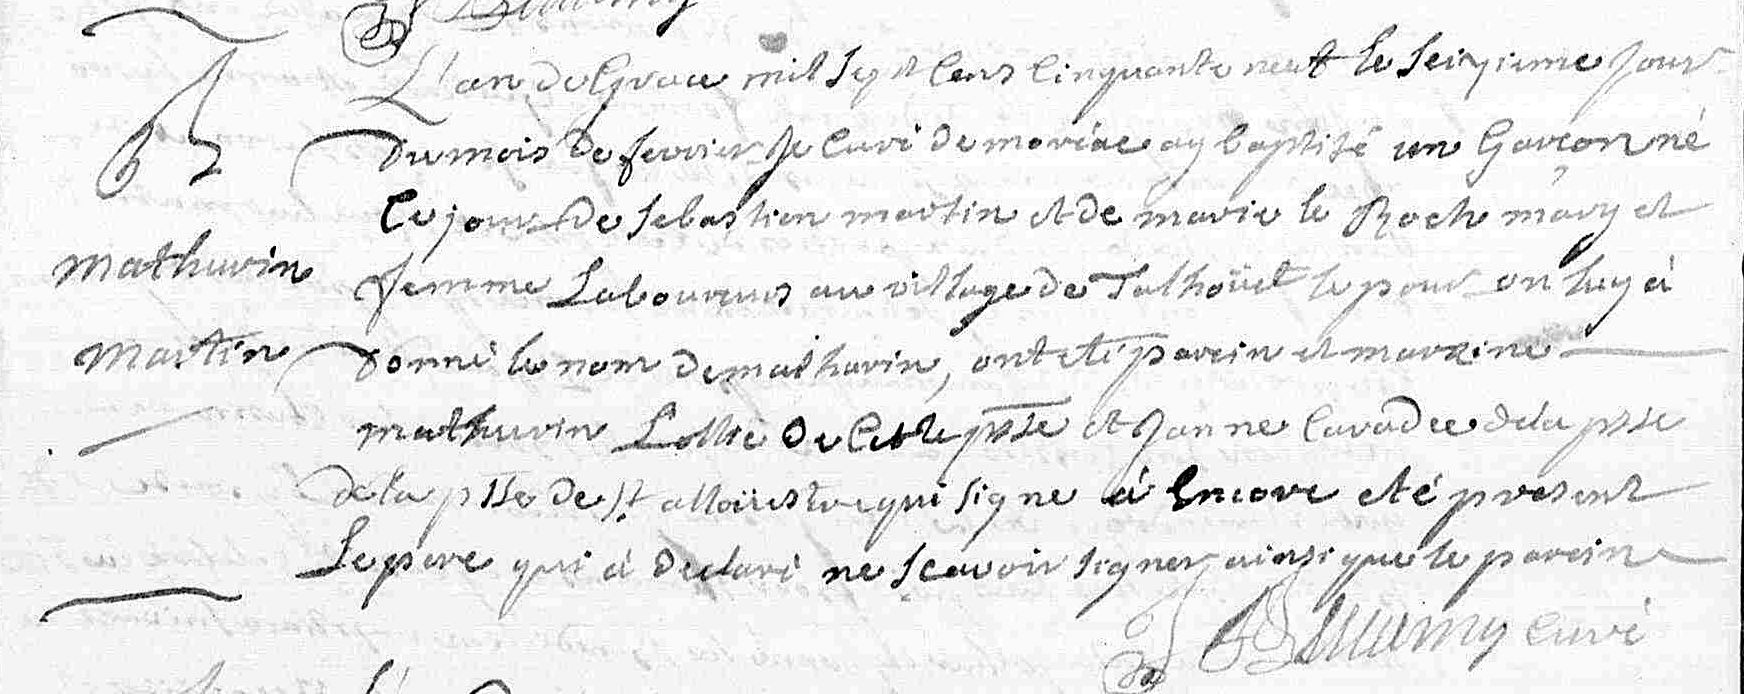 B
L'an de Grace mil sept cens cinquante neuf le seizieme jour
du mois de fevrier Je Curé de moréac ay baptisé un Garçon né
Ce jour de Sebastien martin et de marie le Roch mary et
mathurin
femme Laboureurs au village de Talhoüet le pour on luy à
martin
donné le nom de mathurin, ont eté parein et mareine
mathurin Lollie de Cette psse et Janne Cavadee de la psse
de la psse de st alloüestre qui signe à Encore eté present
Le pere qui à declaré ne sçavoir signer ainsi que le parein
Curé